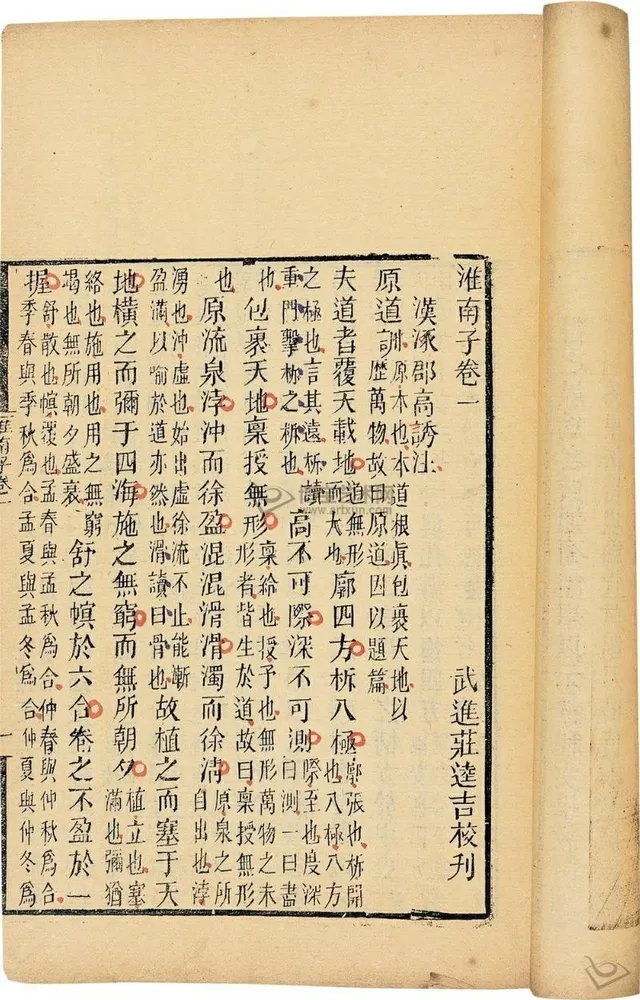 淮南子卷一
漢涿郡高誘注　武進莊逵吉校刊
原道訓 原本也本道根眞包裹天地以歷萬物故曰原道因以題篇
夫道者覆天載地 道無形而大也 廓四方柝八極 廓張也柝開也八極八方
之極也言其遠柝讀重門擊柝之柝也 高不可際深不可測 際至也度深曰測一曰盡
也 包裹天地稟授無形 稟給也授予也無形萬物之未形者皆生於道故曰稟授無形
也 原流泉浡沖而徐盈混混滑滑濁而徐清 原泉之所自出也浡
湧也沖虛也始出虛徐流不止能漸盈滿以喻於道亦然也滑讀曰骨也 故植之而塞于天
地橫之而彌于四海施之無窮而無所朝夕 植立也塞滿也彌猶
絡也施用也用之無窮竭也無所朝夕盛衰 舒之幎於六合卷之不盈於一
握 舒散也幎覆也孟春與孟秋為合仲春與仲秋為合季春與季秋為合孟夏與孟冬為合仲夏與仲冬為
淮南子卷一
一